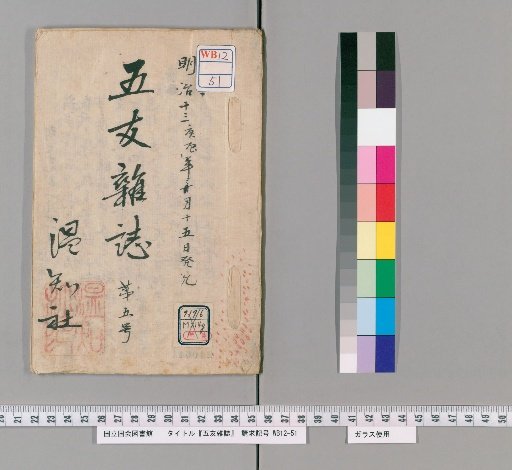 WB12
51
明治十三庚辰年
月十五日発兌
五友雜誌
第五号
温知社
国立国会図書館 タイトル『五友雑誌』 請求記号 WB12-51
ガラス使用